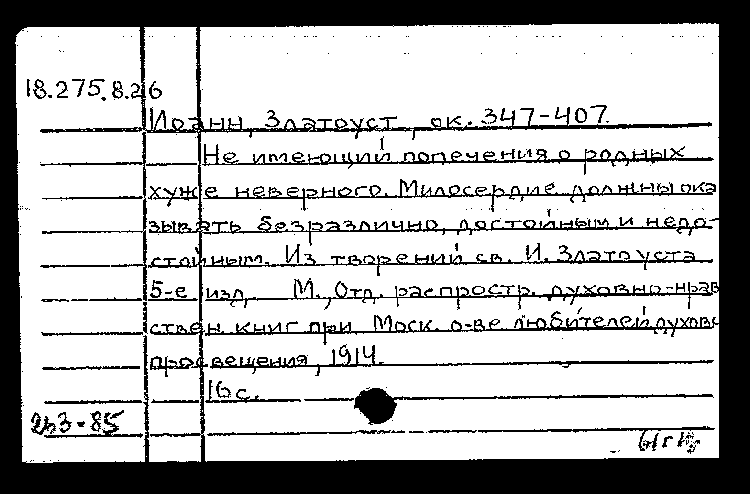 18.275.8.26
Иоанн, Златоуст, ок. 347-407.
Не имеющий попечения о родных
хуже неверного. Милосердие должны ока
зывать безразлично, достойным и недо-
стойным. Из творений св. И. Златоуста
5-е изд. М., Отд. распростр. духовно-нрав
ствен. книг при Моск. о-ве любителей духовн
просвещения, 1914.
16 с.
263-85